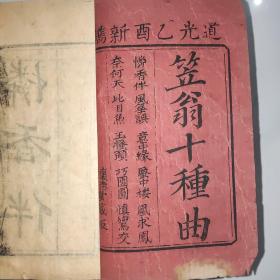 道光乙酉新鐫
笠翁十種曲
憐香伴 風箏誤 意中緣 蜃中樓 凰求鳳
奈何天 比目魚 玉搔頭 巧團圓 慎鸞交
憐香伴